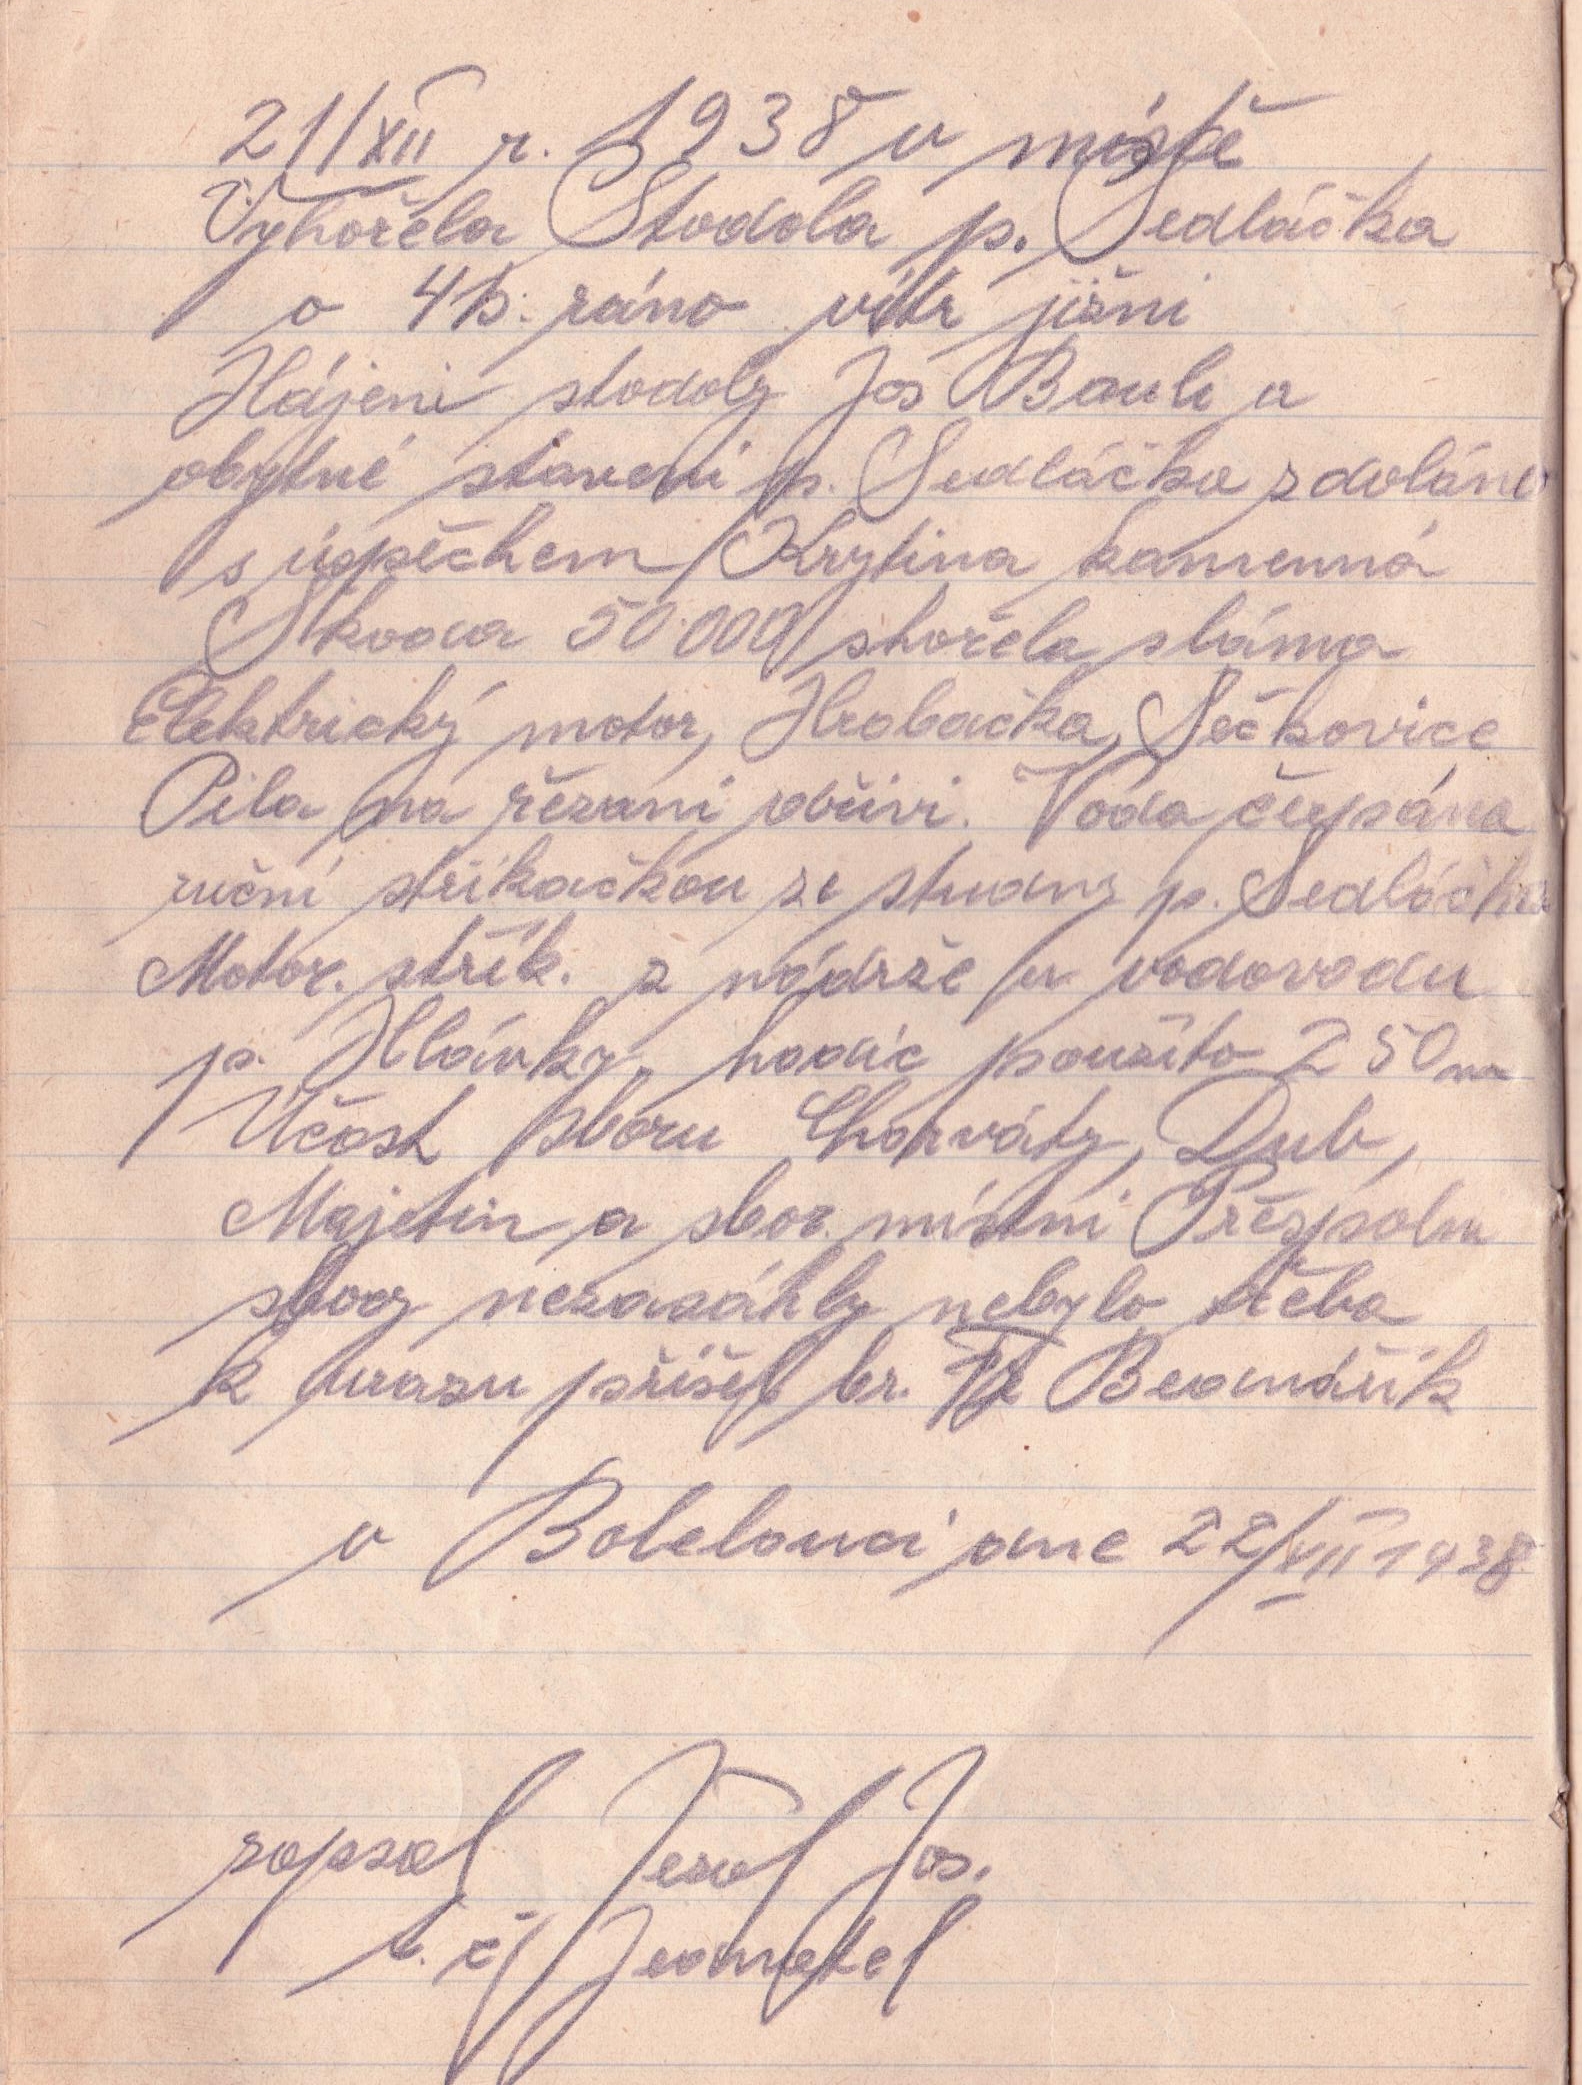 21/XII r. 1938 v místě
Vyhořela Stodola p. Sedláčka
o 4h. ráno vítr jižni
Hájeni stodoly Jos Baub a
obytné staveni p. Sedláčka zdoláno
s úspěchem Krytina kamenná
Škoda 50.000 shořela sláma
Elektrický motor, Hrabačka, Sečkovice
Pila na řezani dřivi. Voda čerpána
ruční střikačkou ze studny p. Sedláčka
Motor. střík. z nádrže u vodovodu
p. Hlávky, hadic použito 250 m
Účast sboru Charváty, Dub,
Majetin a sbor místni Přespolni
sbory nezasáhly nebylo třeba
k urazu přišel br. Bednářík
v Bolelouci dne 22/XII 1938
zapsal Jos.
t. č. Jednatel